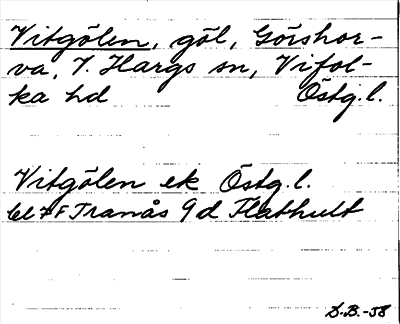 Vitgölen, göl, Görshor-
va, V. Hargs sn, Vifol-
ka hd Östg.l.
Vitgölen ek Östg.l.
bl 7F Tranås 9d Flathult
S.B.-58